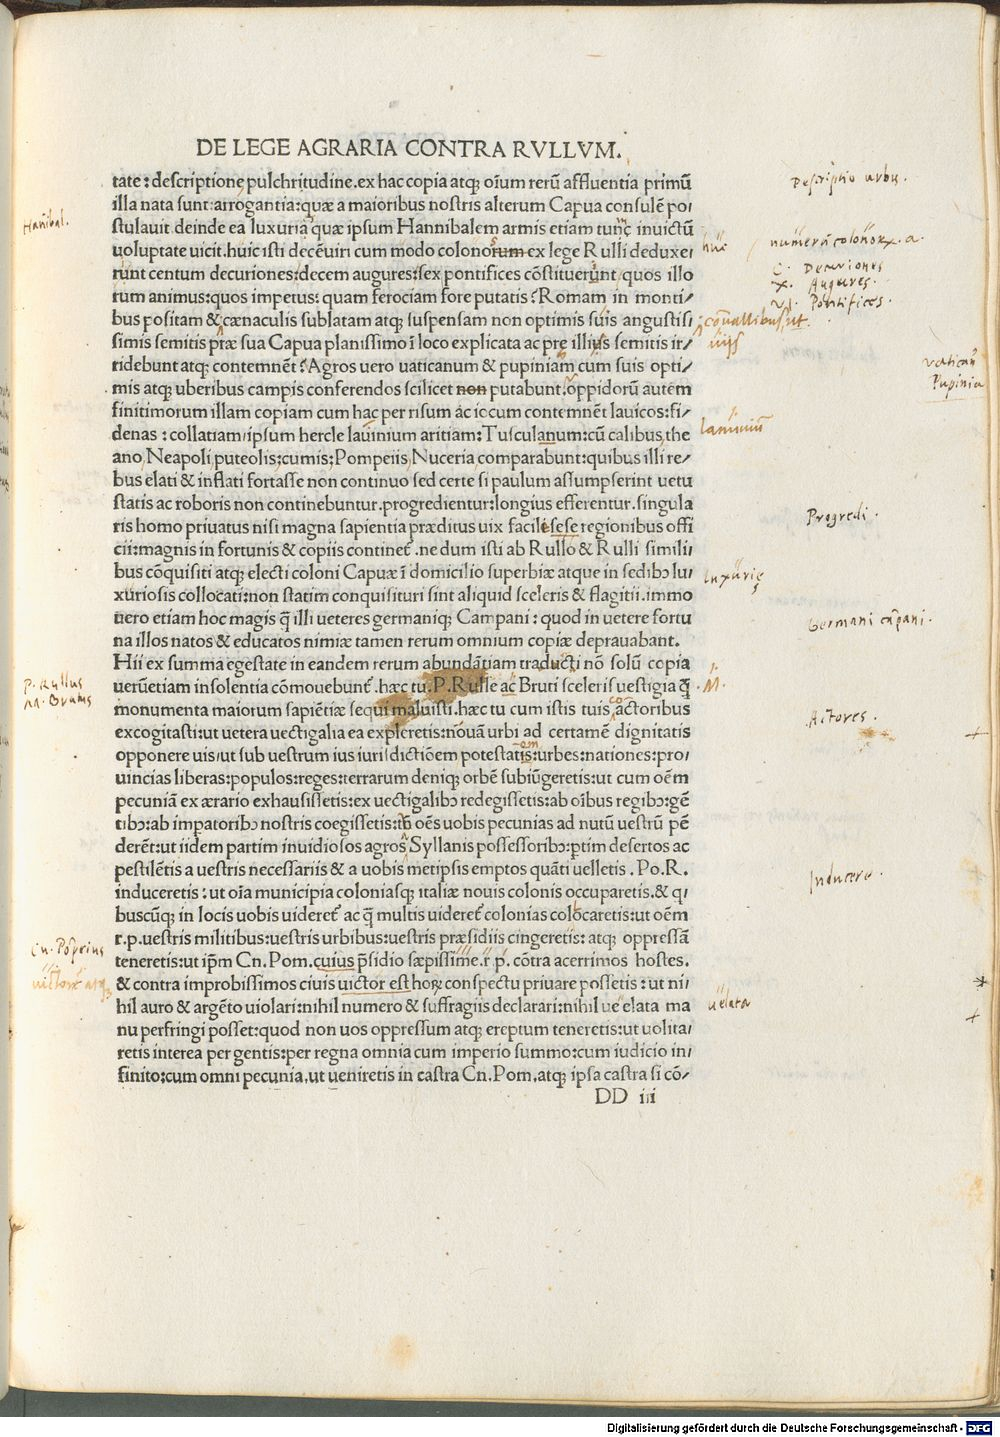 DE LEGE AGRARIA CONTRA RVLLVM.
tate: descriptione pulchritudine. ex hac copia atq; oĩum rerũ affluentia primũ
illa nata sunt: arrogantia: quæ a maioribus nostris alterum Capua consulẽ po/
stulauit. deinde ea luxuria quæ ipsum Hannibalem armis etiam tunc inuictũ
uoluptate uicit. huic isti decẽuiri cum modo colonorum ex lege Rulli deduxe/
runt centum decuriones: decem augures: sex pontifices cõstituerunt, quos illo
rum animus: quos impetus: quam ferociam fore putatis? Romam in monti/
bus positam & cænaculis sublatam atq; suspensam non optimis suis angustissi
simis semitis præ sua Capua planissimo ĩ loco explicata ac pre illius semitis ir/
ridebunt atq; contemnẽt? Agros uero uaticanum & pupiniam cum suis opti/
mis atq; uberibus campis conferendos scilicet non putabunt. oppidorũ autem
finitimorum illam copiam cum hac per risum ac iocum contemnẽt lauicos: fi/
denas: collatiam, ipsum hercle lauinium aritiam: Tusculanum: cũ calibus, the
ano, Neapoli, puteolis; cumis; Pompeiis, Nuceria comparabunt: quibus illi re/
bus elati & inflati fortasse non continuo sed certe si paulum assumpserint uetu
statis ac roboris non continebuntur. progredientur: longius efferentur. singula
ris homo priuatus nisi magna sapientia præditus uix facile sese regionibus offi
cii: magnis in fortunis & copiis continet̃. ne dum isti ab Rullo & Rulli simili/
bus cõquisiti atq; electi coloni Capuæ ĩ domicilio superbiæ atque in sedibꝫ lu/
xuriosis collocati: non statim conquisituri sint aliquid sceleris & flagitii. immo
uero etiam hoc magis q̃ illi ueteres germaniq; Campani: quod in uetere fortu
na illos natos & educatos nimiæ tamen rerum omnium copiæ deprauabant.
Hii ex summa egestate in eandem rerum abundãtiam traducti nõ solũ copia
uerũetiam insolentia cõmouebunt̃. hæc tu. P. Rulle ac Bruti sceleris uestigia q̃
monumenta maiorum sapiẽtiæ sequi maluisti. hæc tu cum istis tuis actoribus
excogitasti: ut uetera uectigalia ea expleretis: nõuã urbi ad certamẽ dignitatis
opponere uis, ut sub uestrum ius iuri, dictiõem potestatis: urbes: nationes: pro/
uincias liberas: populos: reges: terrarum deniq; orbẽ subiũgeretis: ut cum oẽm
pecuniã ex ærario exhausissetis: ex uectigalibꝫ redegissetis: ab oĩbus regibꝫ: gẽ
tibꝫ: ab impatoribꝫ nostris coegissetis: tñ oẽs uobis pecunias ad nutũ uestrũ pẽ
derẽt: ut iidem partim inuidiosos agros Syllanis possessoribꝫ: ptim desertos ac
pestilẽtis a uestris necessariis & a uobis metipsis emptos quãti uelletis. Po. R.
induceretis: ut oĩa municipia coloniasq; italiæ nouis colonis occuparetis. & q
buscũq; in locis uobis uideret̃ ac q̃ multis uideret̃ colonias colocaretis: ut oẽm
r.p. uestris militibus: uestris urbibus: uestris præsidiis cingeretis: atq; oppressã
teneretis: ut ip̃m Cn. Pom. cuius p̃sidio sæpissime. r. p. cõtra acerrimos hostes.
& contra improbissimos ciuis uictor est horꝝ conspectu priuare possetis: ut ni/
hil auro & argẽto uiolari: nihil numero & suffragiis declarari: nihil ui uelata ma
nu perfringi posset: quod non uos oppressum atq; ereptum teneretis: ut uolita/
retis interea per gentis: per regna omnia cum imperio summo: cum iudicio in/
finito; cum omni pecunia, ut ueniretis in castra Cn. Pom, atq; ipsa castra si cõ/
DD iii
Hanibal.
P. Rullus
M. Brutus
Descriptio urbis.
huc
numerũ colonorꝝ. a.
C. Decuriones
X. Augures.
VI. Pontifices.
conuallibus ut.
uijs
Vatican
Pupinia
lanuuiũ
Progredi.
luxurie
Germani cãpani.
M.
Actores.
Inducere.
Cn. Põpeius
uelata
Digitalisierung gefördert durch die Deutsche Forschungsgemeinschaft - DFG